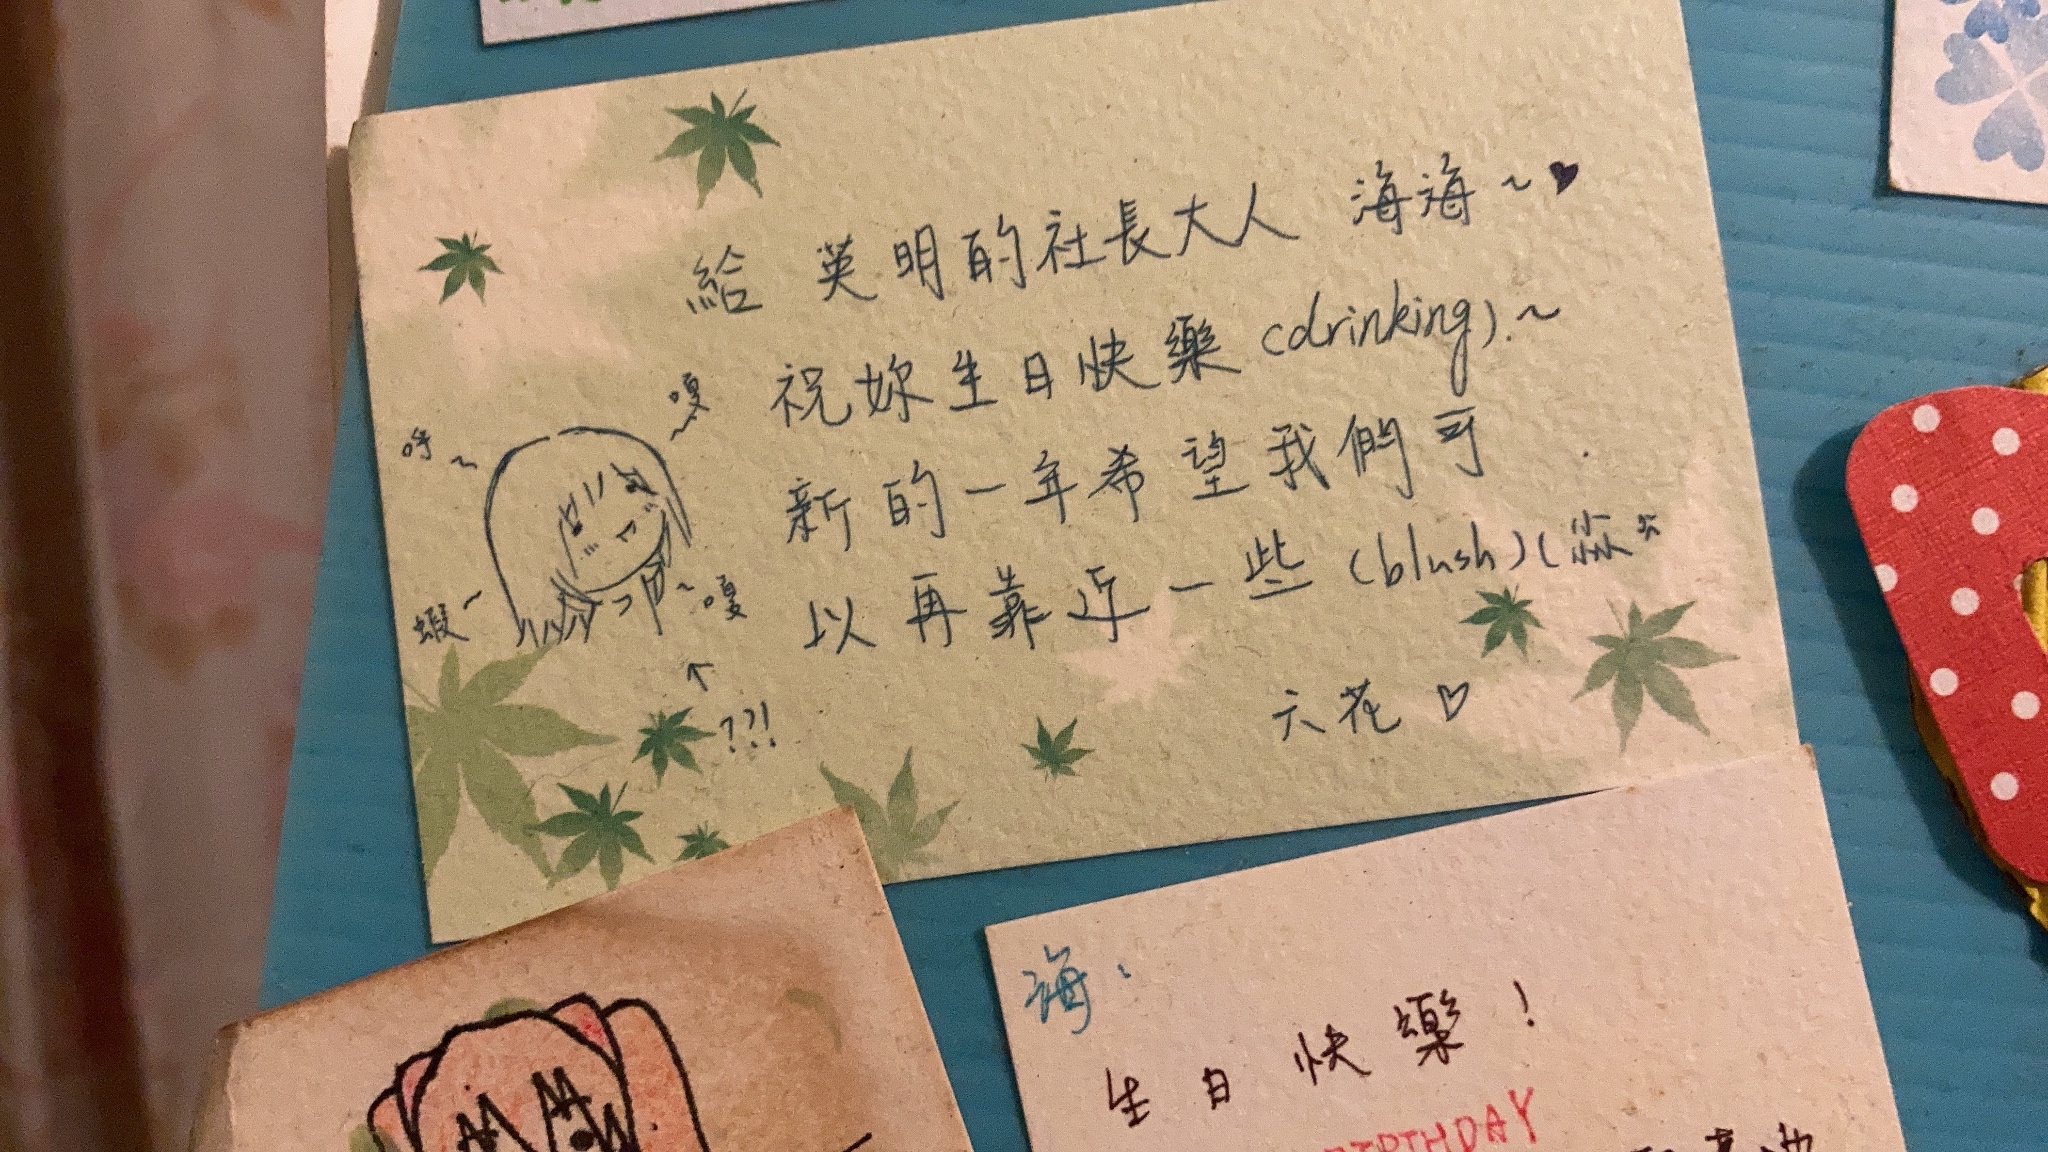 給 英明的社長大人 海海~♥
祝妳生日快樂(drinking).~
新的一年希望我們可
以再靠近一些(blush)(
六花♡
呼~
嘎~
蝦~
~嘎
↑
??!
海、
生日快樂!
BIRTHDAY